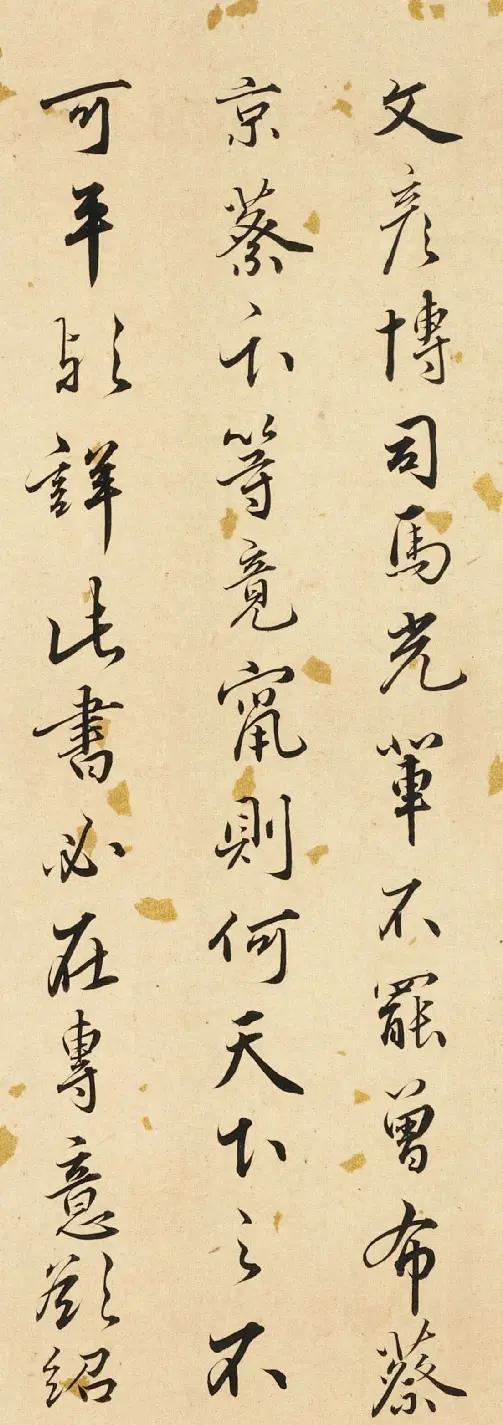 文彥博司馬光輩不罷曾布蔡
京蔡卞等竟竄則何天下之不
可平欤詳此書必在專意欲紹